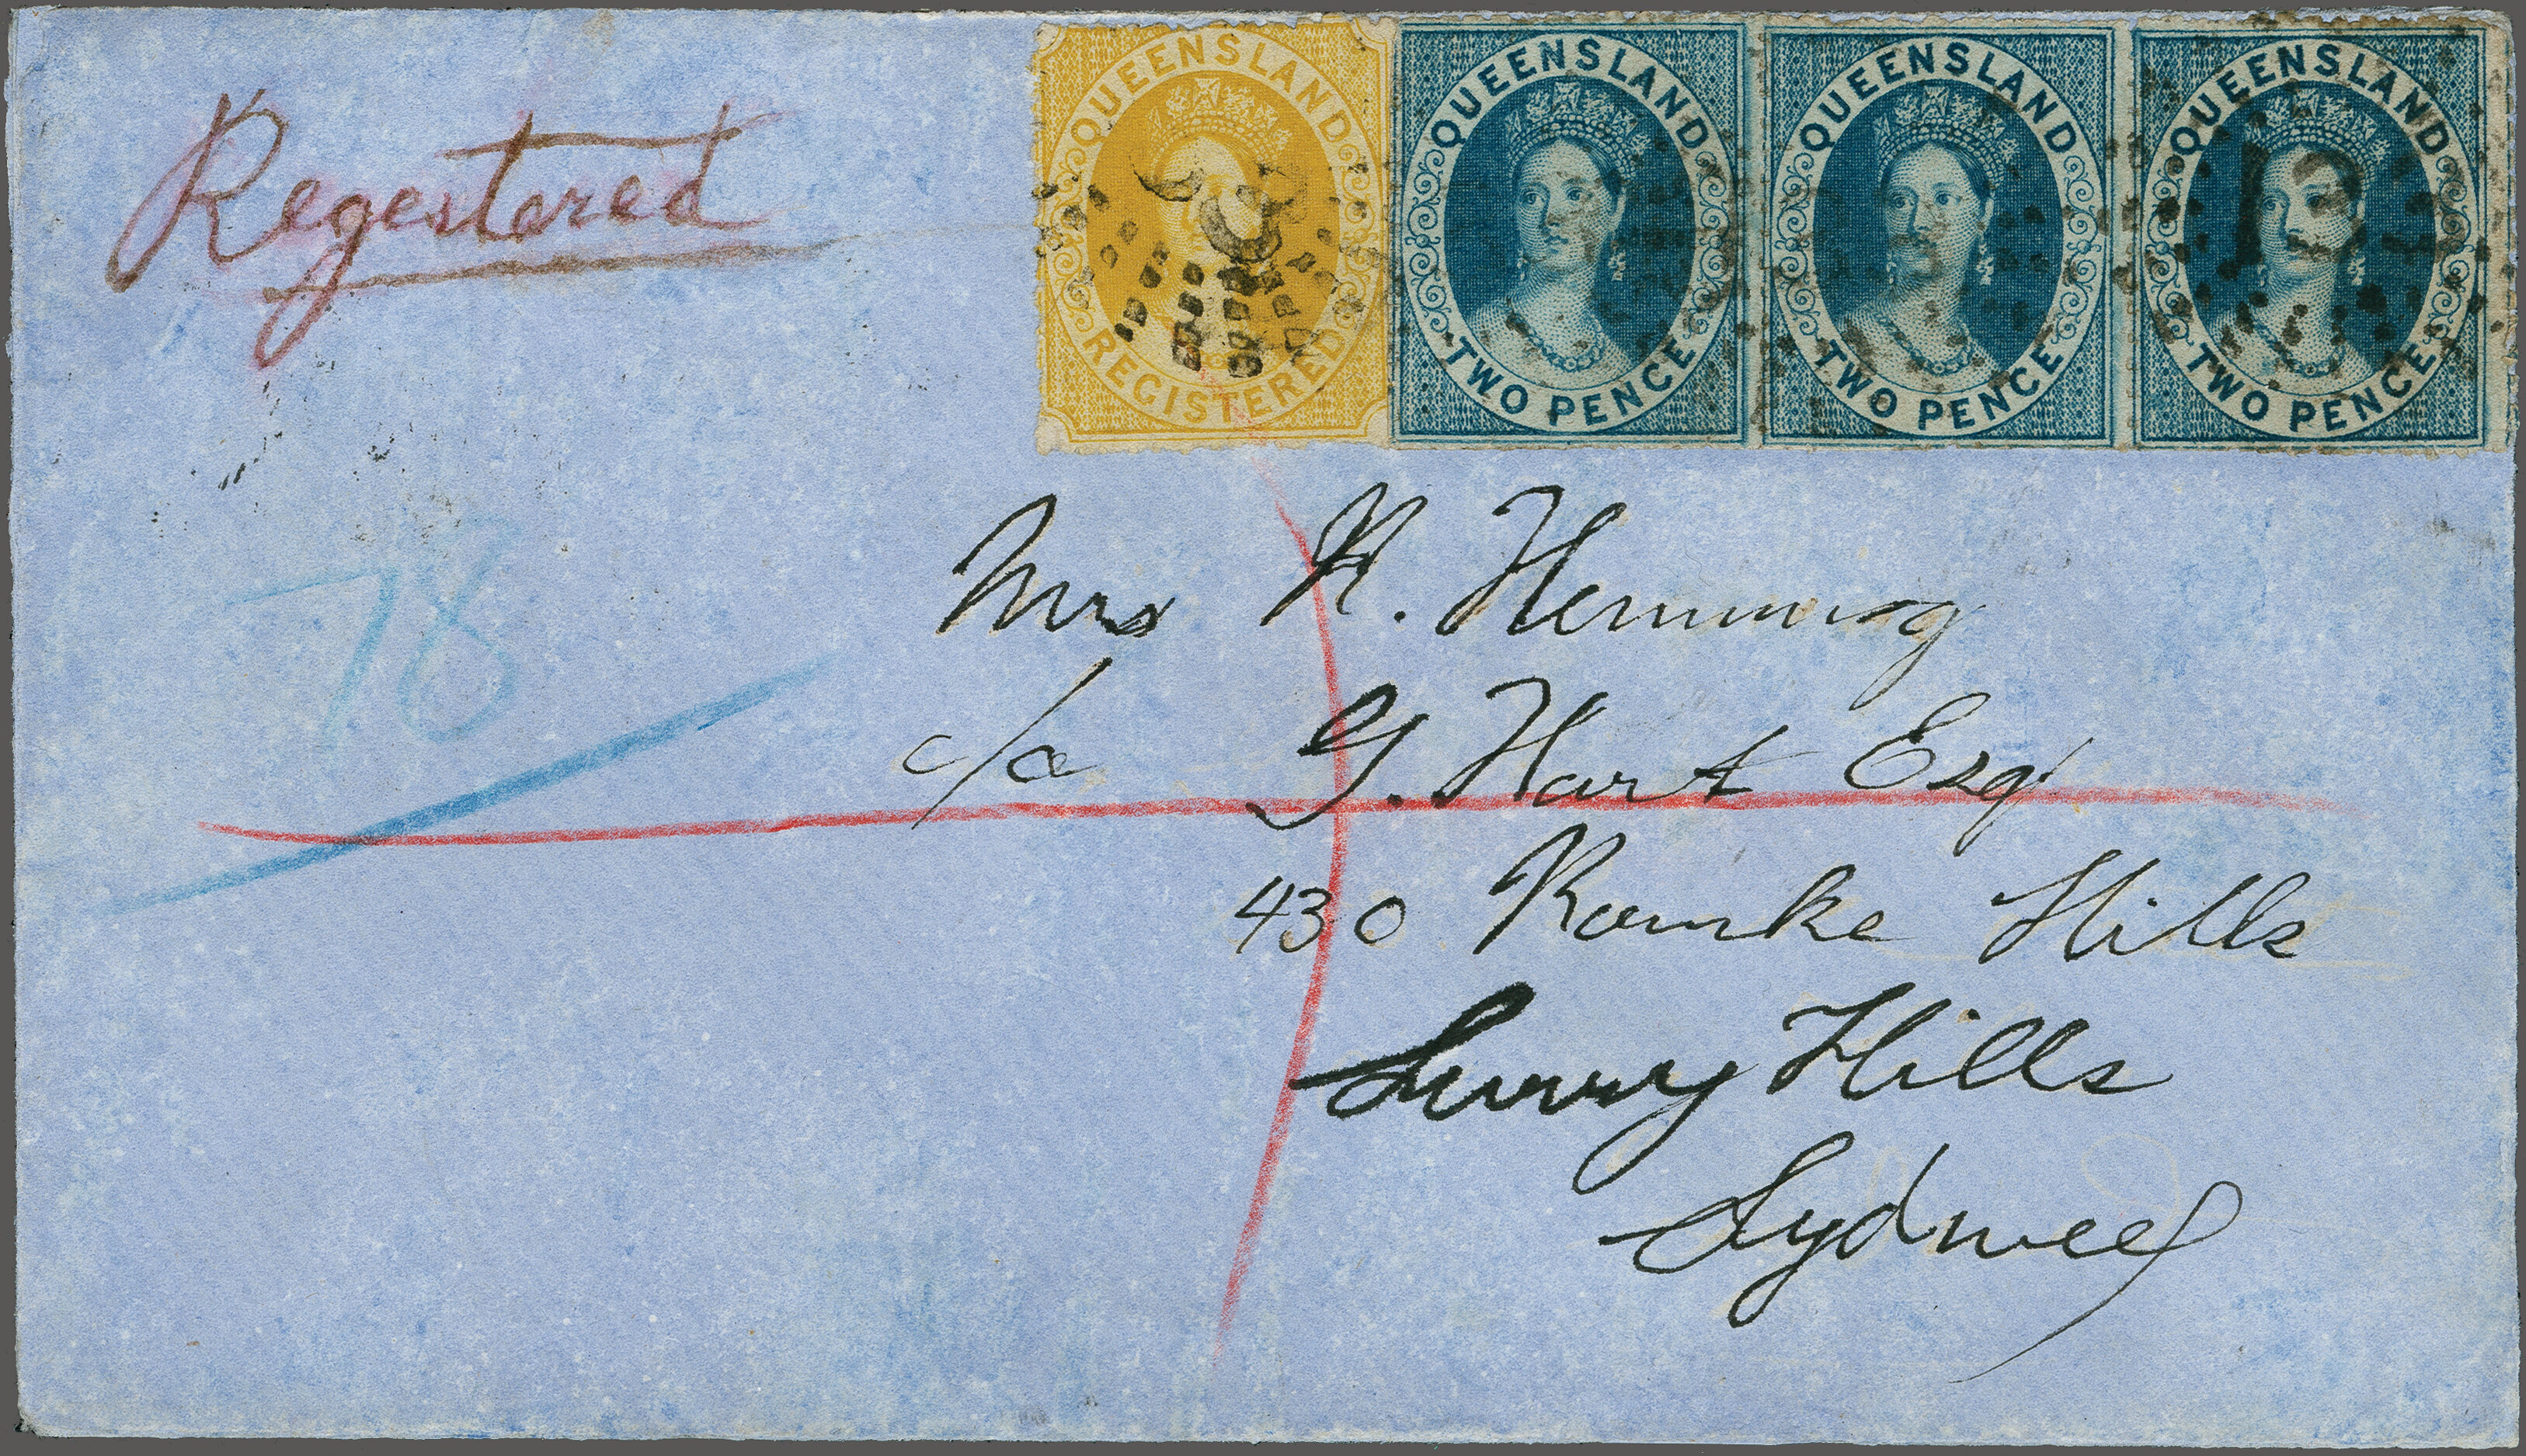 Regestered
QUEENSLAND
REGISTERED
QUEENSLAND
TWO PENCE
QUEENSLAND
TWO PENCE
QUEENSLAND
TWO PENCE
13
78
Mrs H. Hemming
c/o G. Hart Esq
430 Hills
Surry Hills
Sydney